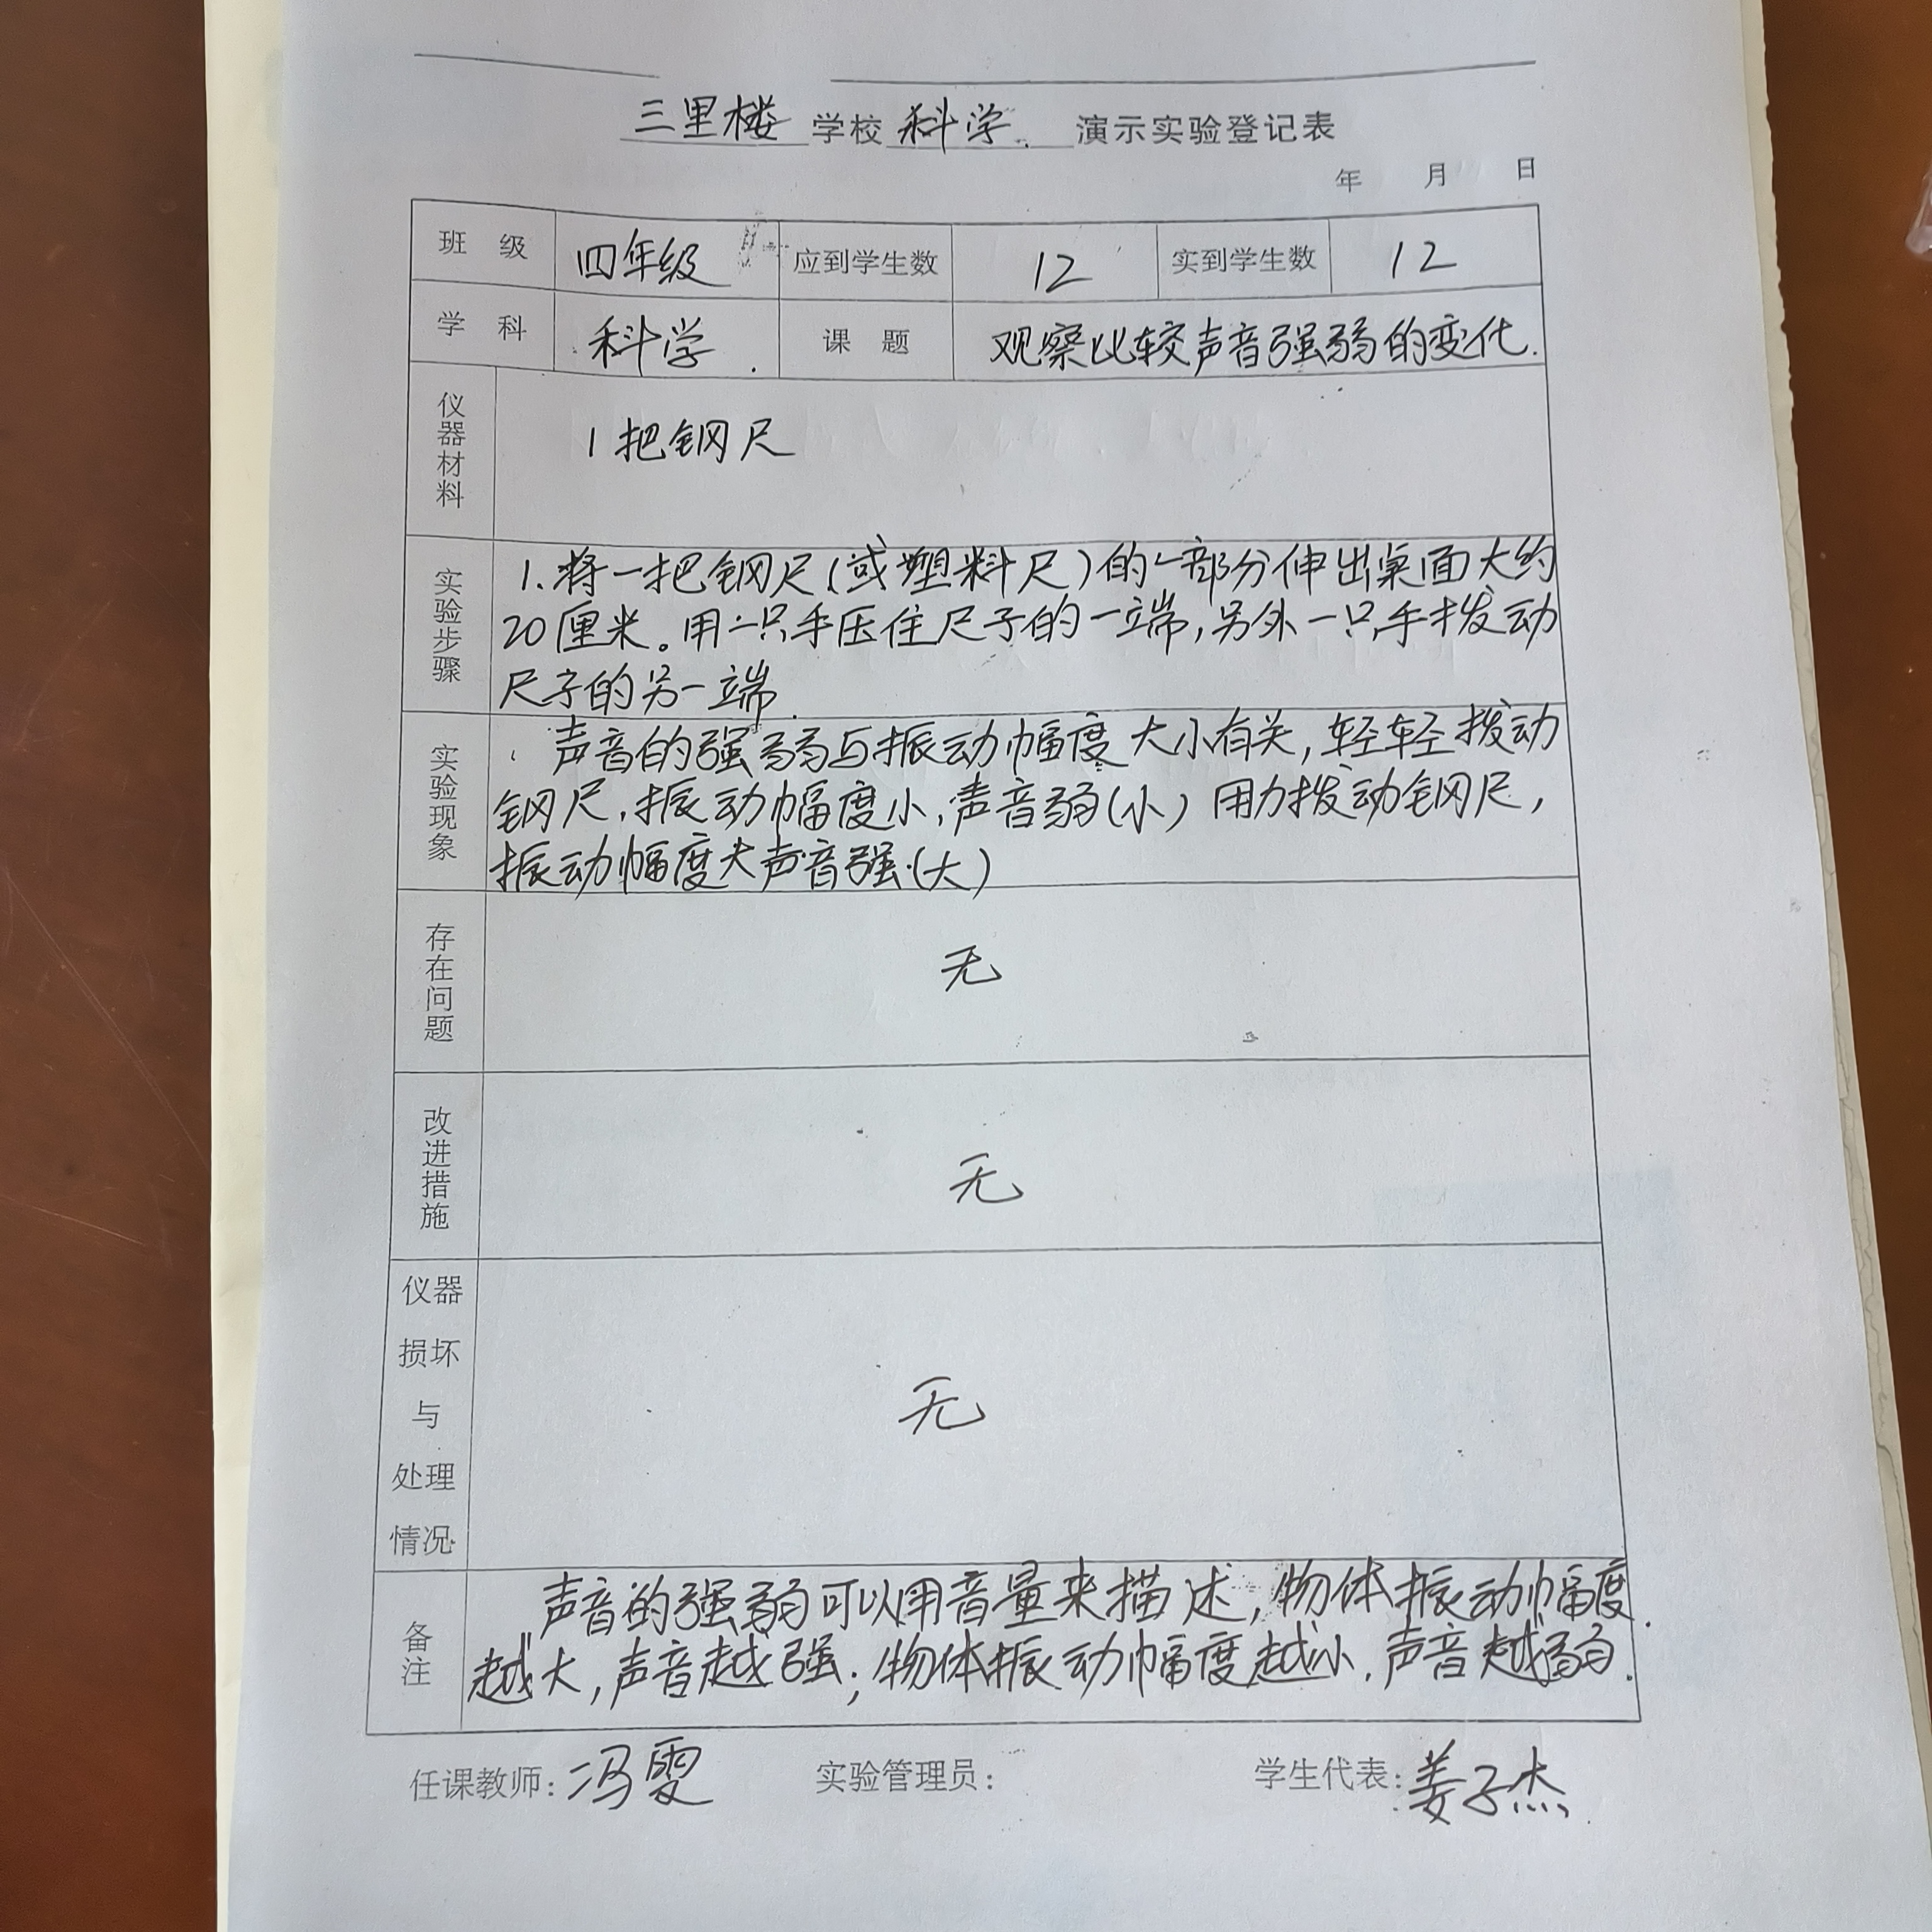 三里楼 学校 科学. 演示实验登记表
年 月 日
班 级 四年级 应到学生数 12 实到学生数 12
学 科 科学. 课 题 观察比较声音强弱的变化.
仪器材料 1把钢尺
实验步骤
1.将一把钢尺(或塑料尺)的一部分伸出桌面大约
20厘米。用一只手压住尺子的一端,另外一只手拨动
尺子的另一端.
实验现象
声音的强弱与振动幅度大小有关,轻轻拨动
钢尺,振动幅度小,声音弱(小)用力拨动钢尺,
振动幅度大声音强(大)
存在问题 无
改进措施 无
仪器
损坏
与
处理
情况
无
备注
声音的强弱可以用音量来描述,物体振动幅度
越大,声音越强;物体振动幅度越小,声音越弱.
任课教师:冯雯 实验管理员: 学生代表:姜子杰